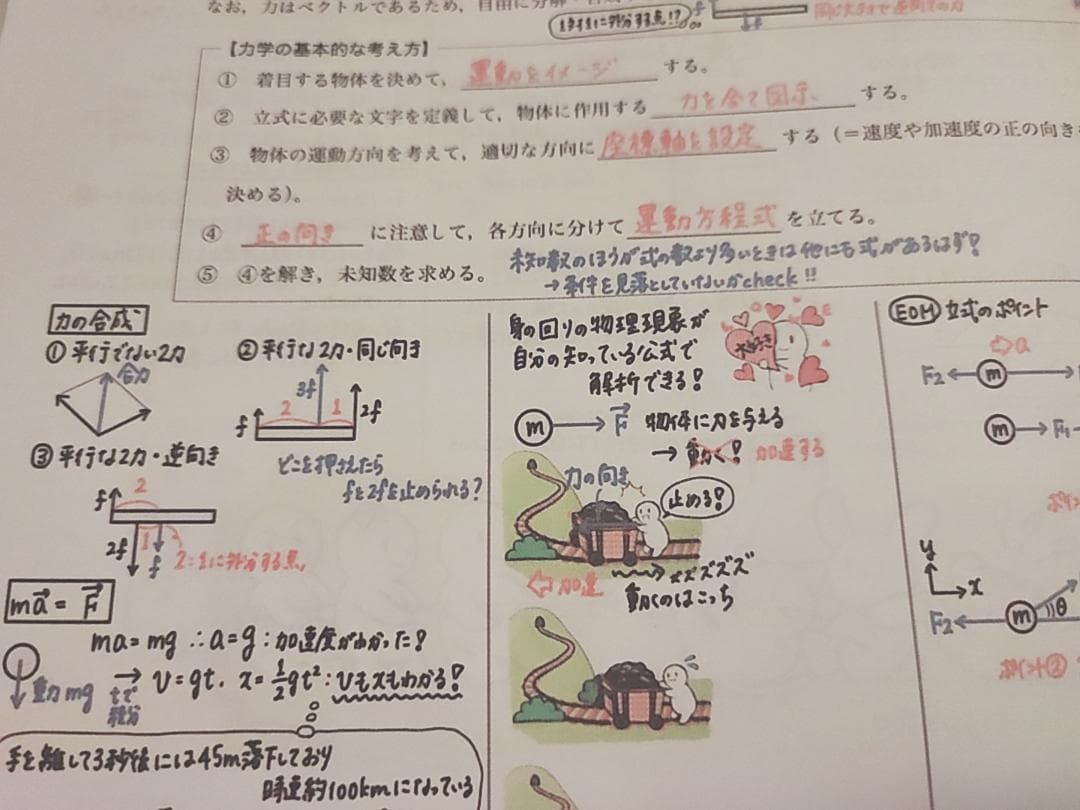 なお，力はベクトルであるため，自由に分解・合
1:1に外分する点!?
同じ大きさで逆向きの力
【力学の基本的な考え方】
① 着目する物体を決めて， 運動をイメージ する。
② 立式に必要な文字を定義して，物体に作用する 力を全て図示 する。
③ 物体の運動方向を考えて，適切な方向に 座標軸を設定 する（＝速度や加速度の正の向きを
決める）。
④ 正の向き に注意して，各方向に分けて 運動方程式 を立てる。
⑤ ④を解き，未知数を求める。
未知数のほうが式の数より多いときは他にも式があるはず？
→条件を見落としていないかcheck!!
力の合成
①平行でない2力
合力
②平行な2力・同じ向き
3f
2 1
f 2f
どこを押さえたら
fと2fを止められる？
③平行な2力・逆向き
2
f
1
2f f
2:1に外分する点
ma = F
ma=mg ∴a=g：加速度がわかった！
重力mg
→ v=gt. x=1/2gt²：vもxもわかる！
tで
積分
手を離して3秒後には45m落下しており
時速約100kmになっている
身の回りの物理現象が
自分の知っている公式で
解析できる！
大好き
m → F 物体に力を与える
→動く！ 加速する
力の向き
止める！
加速
ズズズズ
動くのはこっち
EOM 立式のポイント
a
F2 m
m F1
y
x
F2 m θ
ポイント②